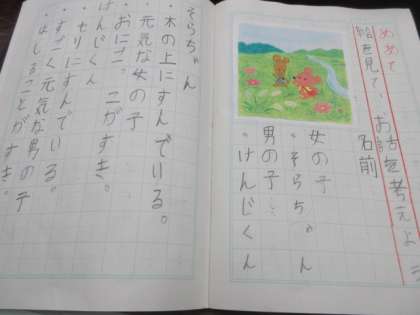 めあて
絵を見て、お話を考えよう
名前
女の子
・そらちゃん
男の子
・けんじくん
そらちゃん
・木の上にすんでいる。
・元気な女の子
・おにごっこがすき。
けんじくん
・もりにすんでいる。
・すごく元気な男の子
・はしることがすき。